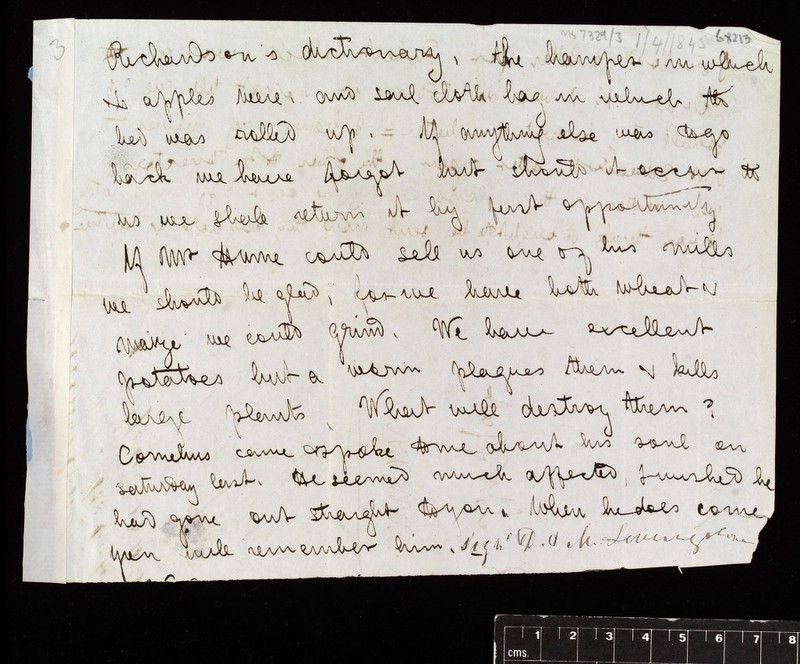 3
MS 7329/3 1/4/1845 68213
Richardson's dictionary, the hamper in which
& apples were, and sail cloth bag in which the
bed was rolled up. = If anything else was to go
back we have forgot but should it occur to
us we shall return it by first opportunity
If Mr Hume could sell us one of his mills
we should be glad, for we have both wheat &
maize we could grind. We have excellent
potatoes but a worm plagues them & kills
large plants, What will destroy them?
Cornelius came & spoke to me about his soul on
saturday last. He seemed much affected, I wished he
had gone out straight to you. When he does come
you will remember him. Signd D. & M. Livingstone
cms. 1 2 3 4 5 6 7 8